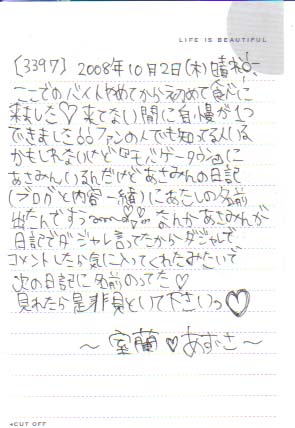 LIFE IS BEAUTIFUL
〔3397〕 2008年10月2日(木)晴れ
ここでのバイトやめてから初めて食べに
来ました♡来てない間に自慢が1つ
できました ファンの人でも知ってる人いる
かもしれないけど モバゲータウンに
あさみんいるんだけどあさみんの日記
(ブログと内容一緒)にあたしの名前
出たんですっ なんかあさみんが
日記でダジャレ言ってたからダジャレで
コメントしたら気に入ってくれたみたいで
次の日記に名前のってた♡
見れたら是非見といて下さいっ♡
～室蘭♡あずさ～
◂CUT OFF